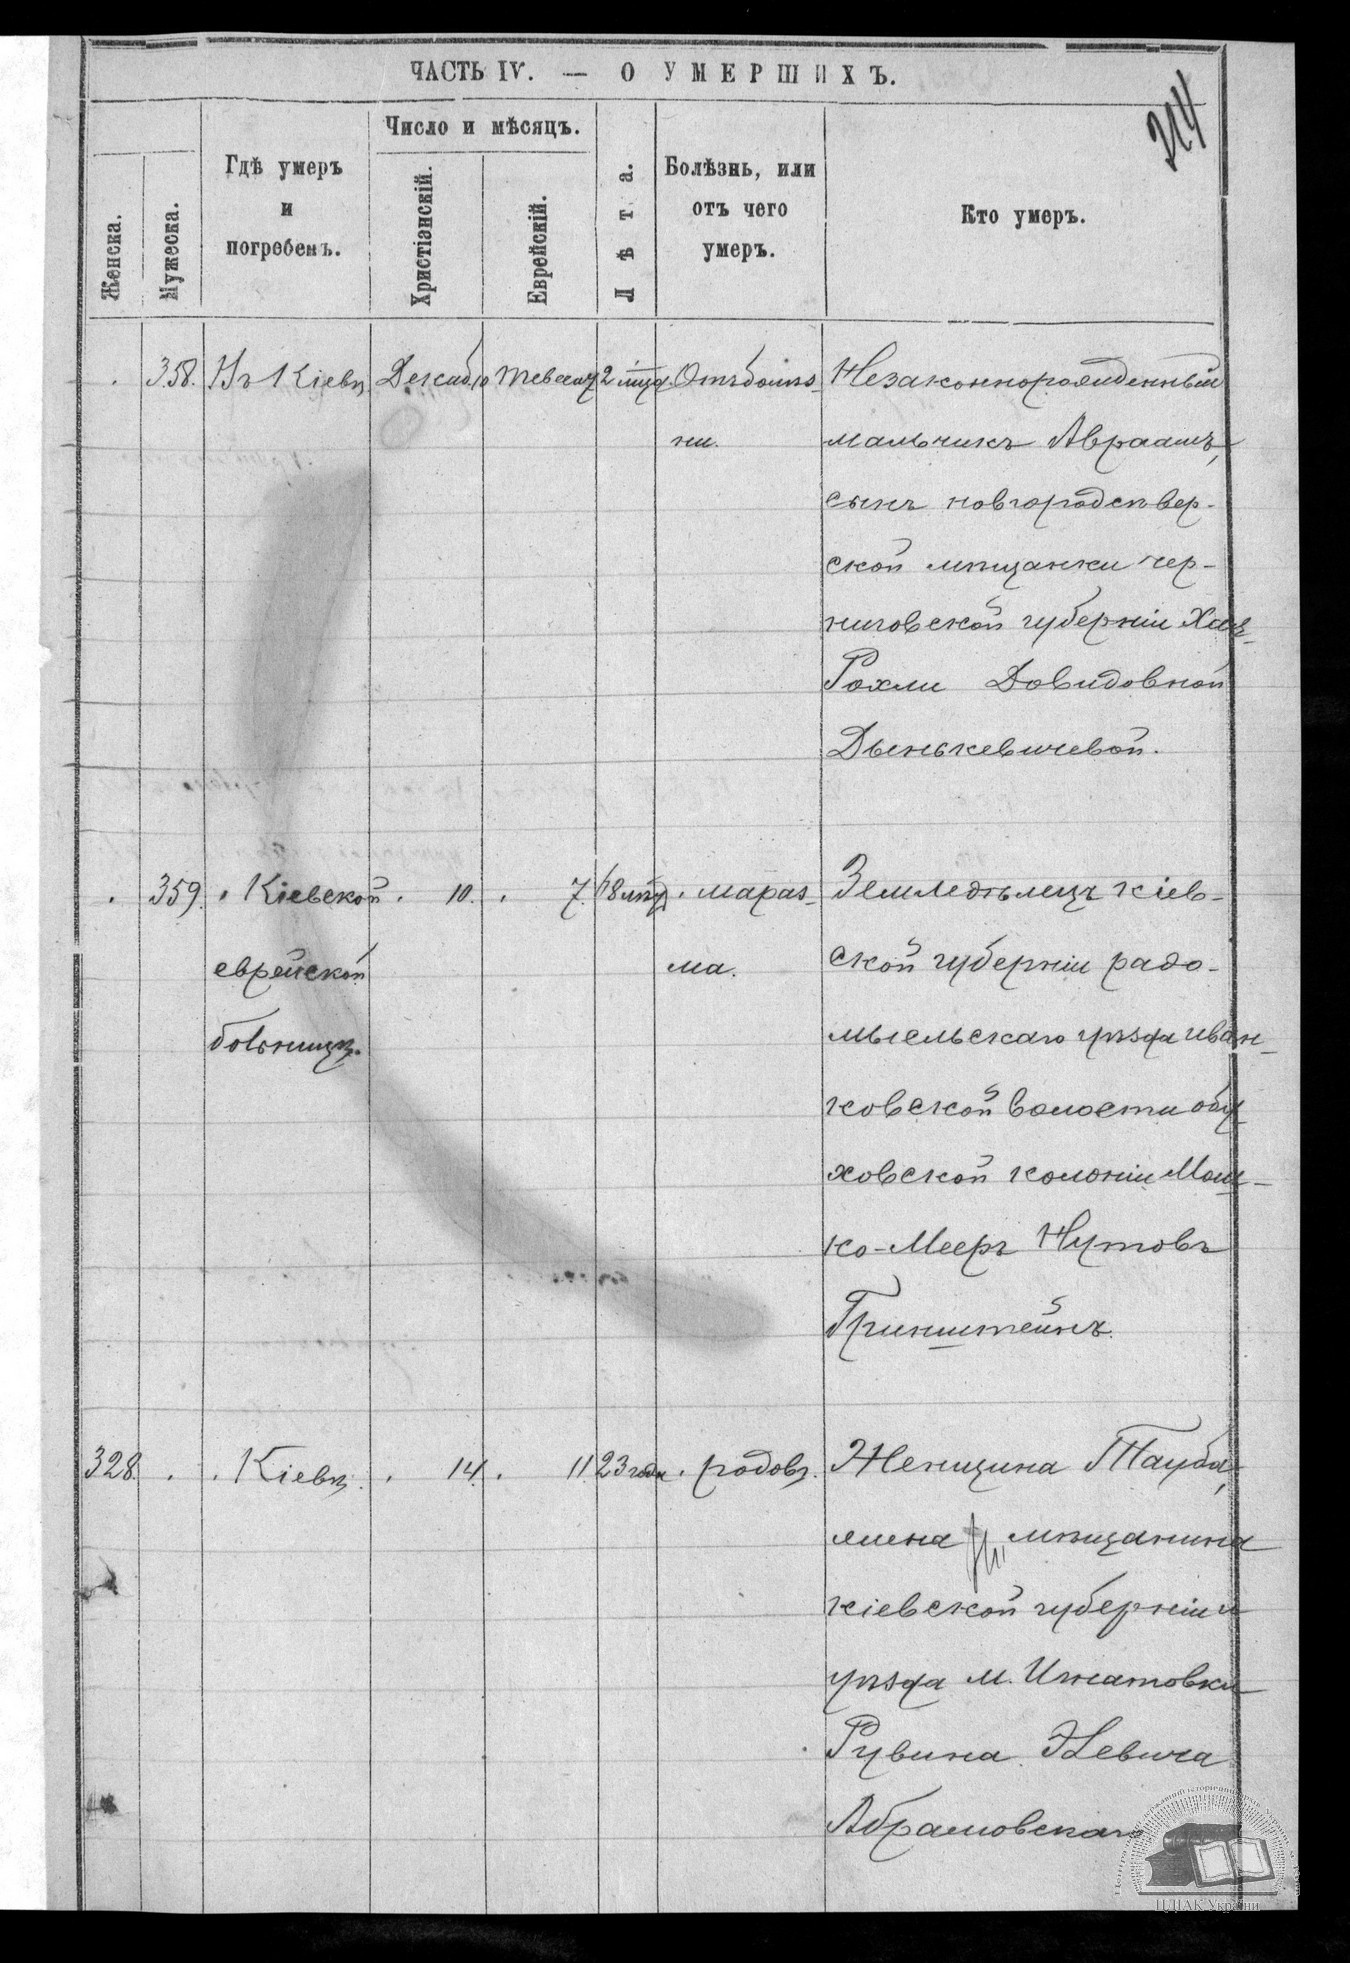 ЧАСТЬ IV. — О УМЕРШИХЪ.
Женска.
Мужеска.
Гдѣ умеръ
и
погребенъ.
Число и мѣсяцъ.
Христіэнскій.
Еврейскій.
Лѣта.
Болѣзнь, или
отъ чего
умеръ.
Кто умеръ.
358. Въ Кіевѣ Декаб. 10 2 мѣц. Отъ болѣз-
ни.
Незаконнорожденный
мальчикъ Авраамъ,
сынъ новгородсѣвер-
ской мѣщанки чер-
ниговской губерніи
Рохли Довидовной
Дынькевичевой.
359. Кіевской
еврейской
больницѣ.
10. 7. мараз-
ма.
Земледѣлецъ кіев-
ской губерніи радо-
мысльскаго уѣзда иван-
ковской волости обу-
ховской колоніи Мош-
ко-Мееръ Нутовъ
Гринштейнъ.
328. Кіевѣ. 14. 11. 23 года родовъ.
Женщина Тауба,
жена мѣщанина
кіевской губерніи и
уѣзда м. Игнатовки
Рувина Хлевича
Абрамовскаго
ЦДІАК України